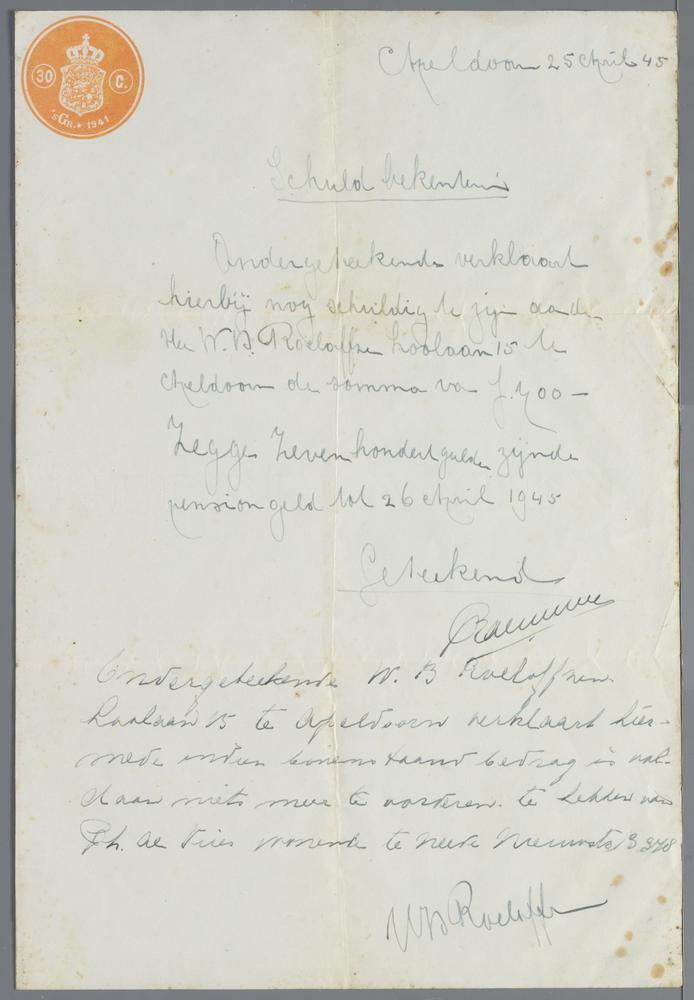 30 C.
'sGR. ★ 1941
Apeldoorn 25 April 45
Schuld bekentenis
Ondergeteekende verklaart
hierbij nog schuldig te zijn aan den
Heer W. B. Roeloffzen Loolaan 15 te
Apeldoorn de somma van f. 700 —
Zegge Zevenhondert gulden zijnde
pension geld tot 26 April 1945
Geteekend
Ondergeteekende W. B Roeloffzen
Loolaan 15 te Apeldoorn verklaart hier-
mede indien bovenstaand bedrag is vol-
daan niets meer te vorderen te hebben van
Ph. de Vries wonende te Neede B 378
WB Roeloffzen